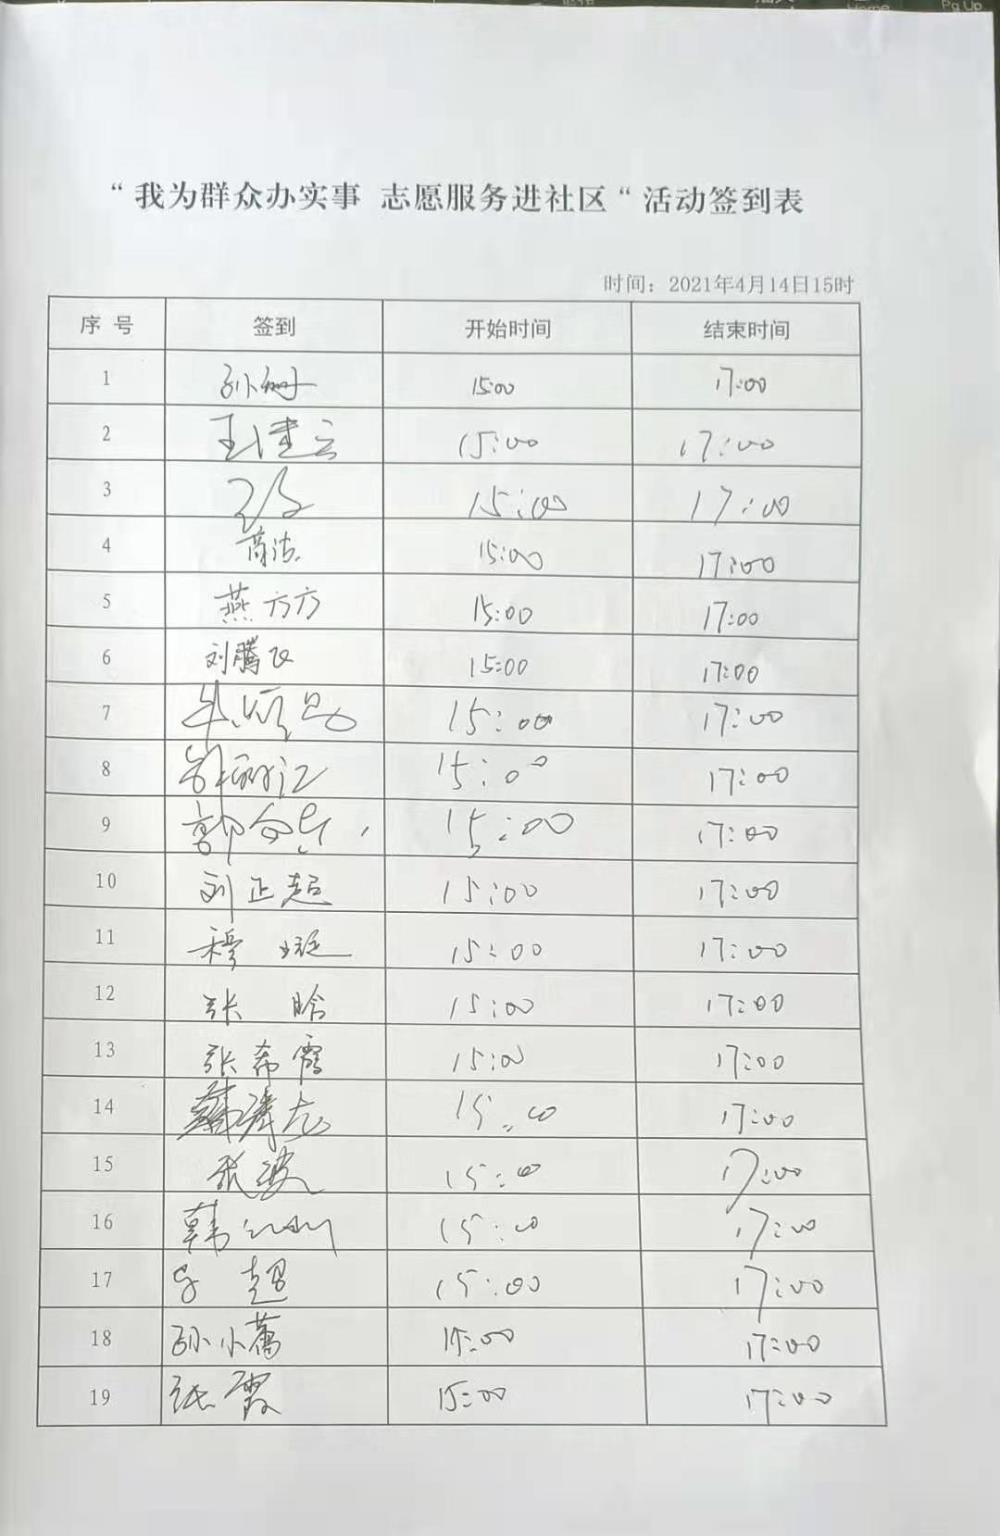 “我为群众办实事 志愿服务进社区“活动签到表
时间：2021年4月14日15时
序 号 签到 开始时间 结束时间
1 孙姗 15:00 17:00
2 王佳云 15:00 17:00
3 15:00 17:00
4 商洁 15:00 17:00
5 燕方方 15:00 17:00
6 刘腾飞 15:00 17:00
7 15:00 17:00
8 15:00 17:00
9 郭 15:00 17:00
10 刘正超 15:00 17:00
11 穆 15:00 17:00
12 张晗 15:00 17:00
13 张希霞 15:00 17:00
14 15:00 17:00
15 张波 15:00 17:00
16 韩 15:00 17:00
17 超 15:00 17:00
18 孙小 15:00 17:00
19 张霞 15:00 17:00